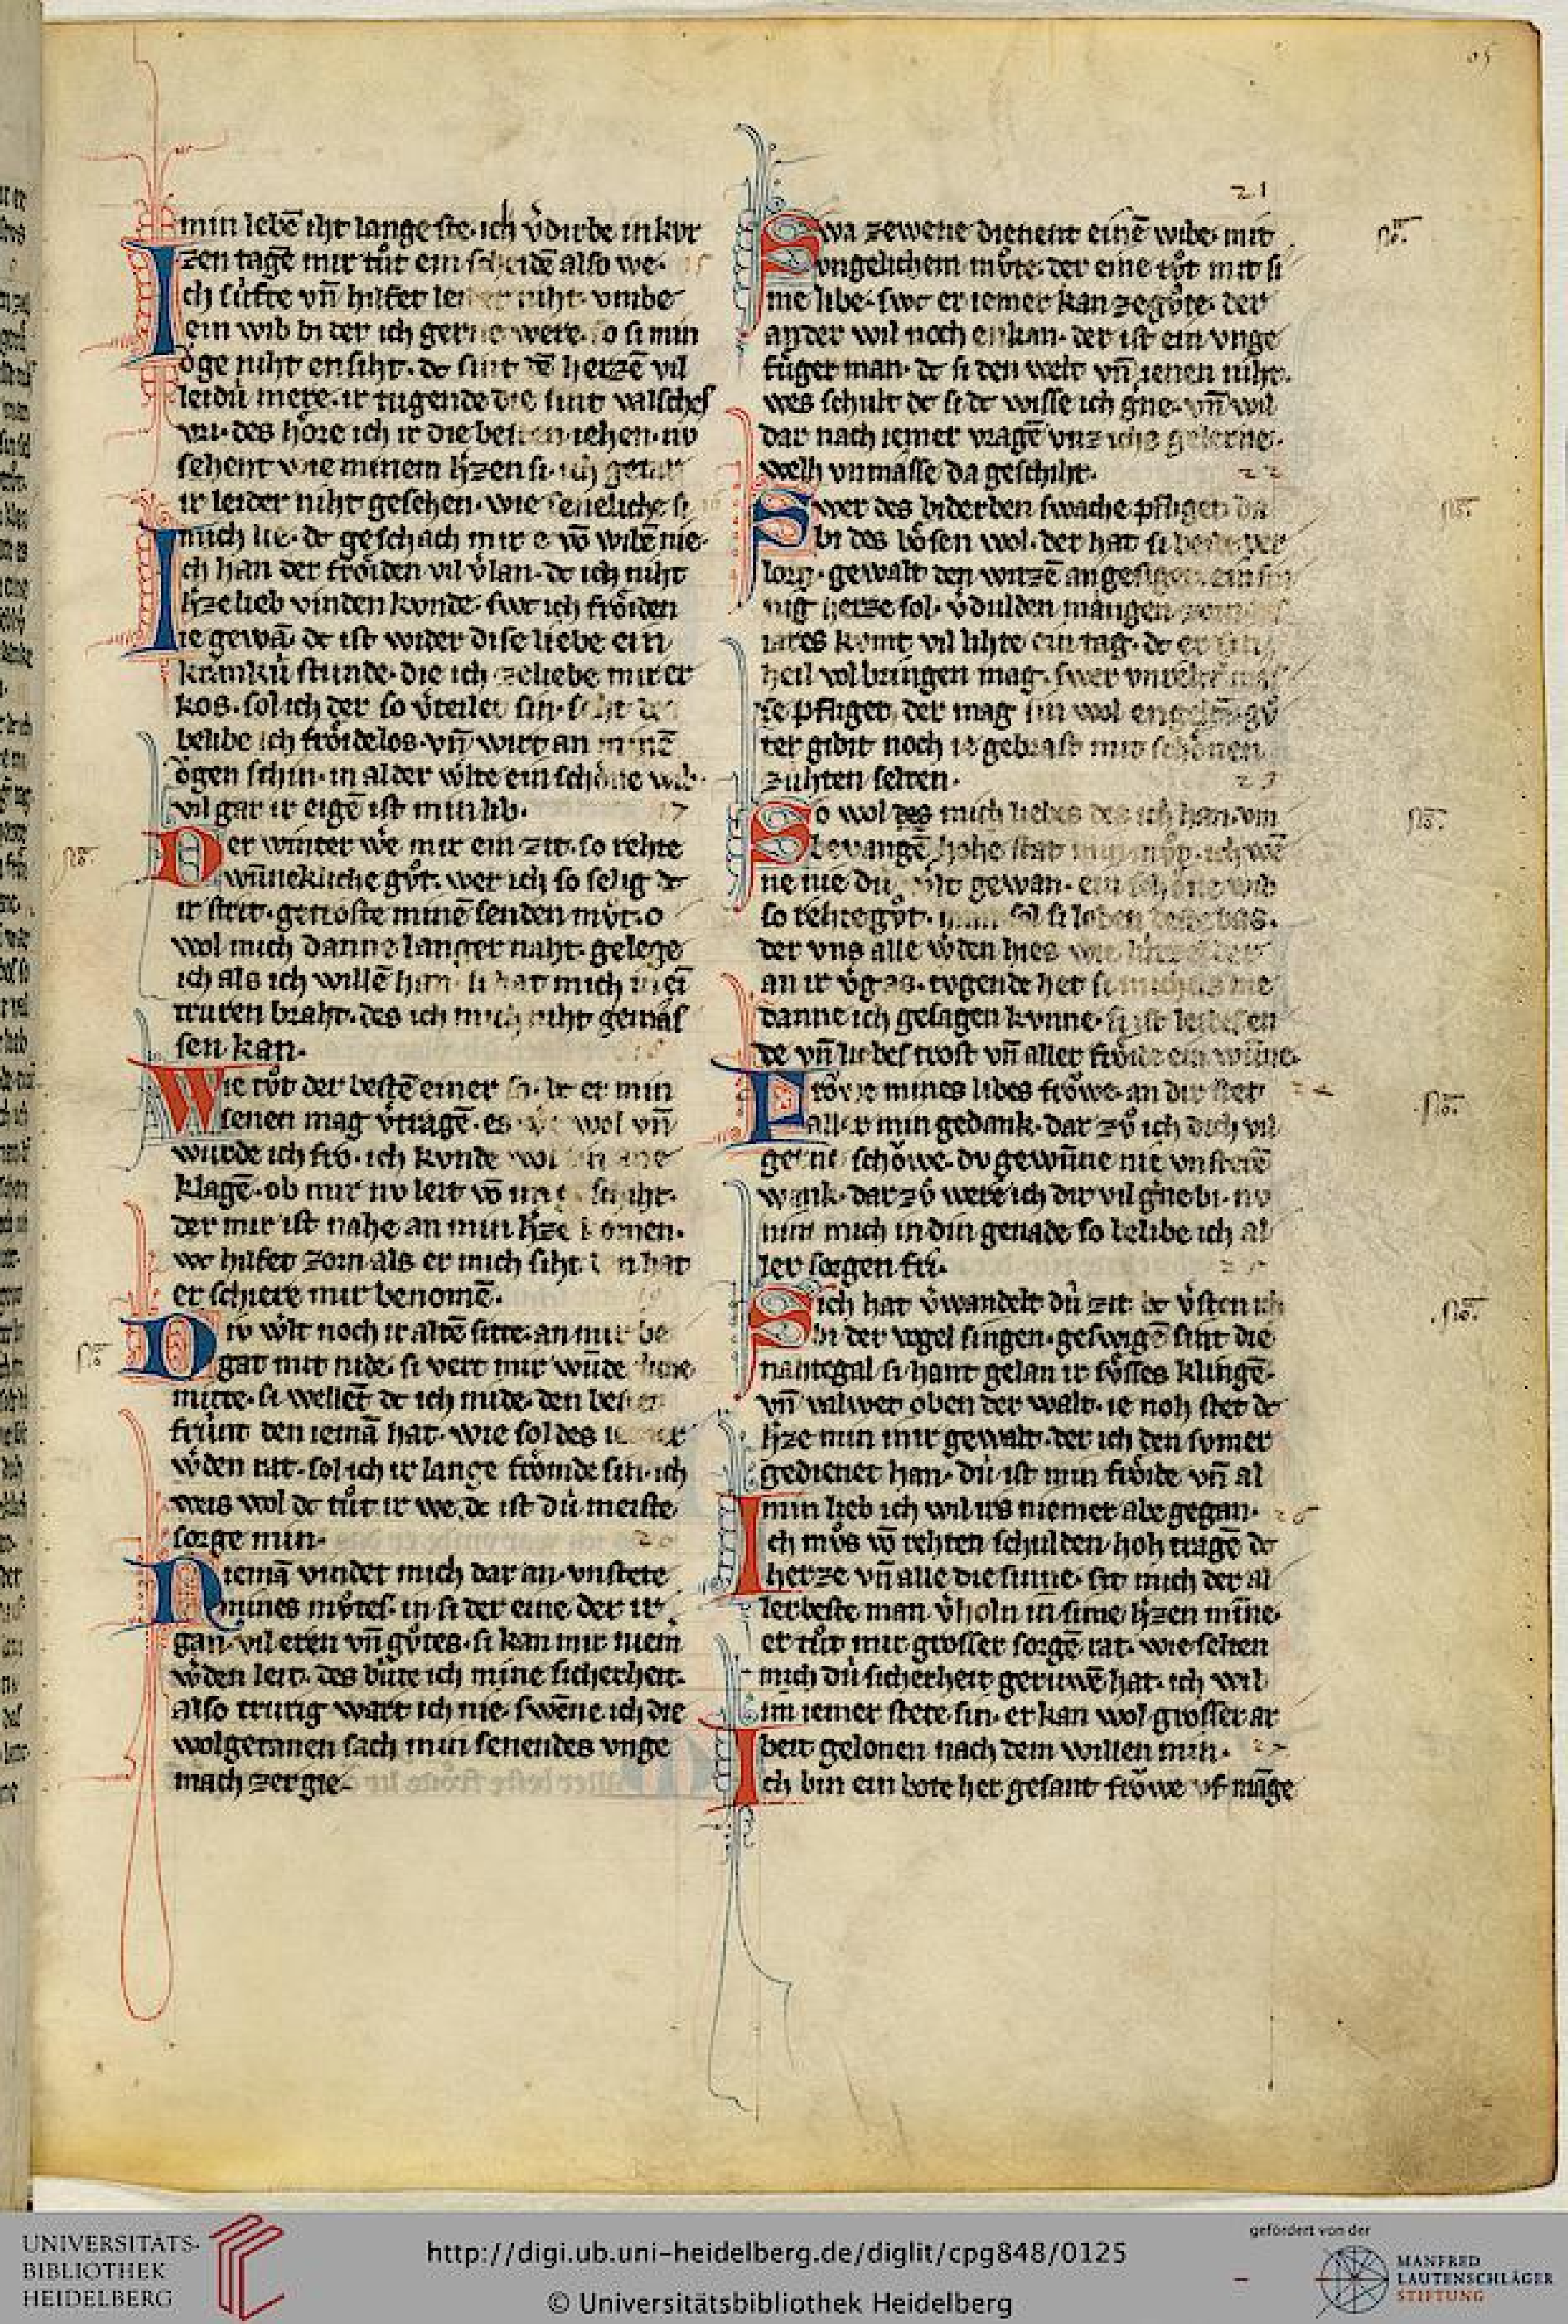 65
min lebē iht lange ste. ich v̾dirbe in kvr
zen tagē mir tůt ein scheidē also we.
Ich sùfte vn̄ hilfet leider niht vmbe
ein wib bi der ich gerne were. so si min
ŏge niht ensiht. dc sint dē herzē vil
leidù mere. ir tugende die sint valsches
vri. des hŏre ich ir die besten iehen. nv
sehent wie minem h̾zen si. ich getar
ir leider niht gesehen. wie seneliche si
mich lie. dc geschach mir e vō wibē nie.
Ich han der frŏiden vil v̾lan. dc ich niht
h̾zelieb vinden konde. swc ich frŏiden
ie gewā. dc ist wider dise liebe ein
krankù stunde. die ich ze liebe mir er
kos. sol ich der so v̾teilet sin. seht des
belibe ich frŏidelos. vn̄ wirt an minē
ŏgen schin. in al der w̾lte ein schŏne wib.
vil gar ir eigē ist min lib. 17
Der winter we mir ein zit. so rehte
wn̄nekliche gůt. wer ich so selig dc
ir strit. getroste minē senden můt. o
wol mich danne langer naht. gelege
ich als ich willē han. si hat mich in ei
truren braht. des ich mich niht gemas
sen kan.
Wie tůt der bestē einer so. dc er min
senen mag v̾tragē. es wol vn̄
wurde ich fro. ich konde wol
klagē. ob mir nv leit vō
der mir ist nahe an min h̾ze komen.
wc hilfet zorn als er mich siht. den hat
er schiere mir benomē.
Div w̾lt noch ir altē sitte. an mir be
gat mit nide. si vert mir wūde
mitte. si wellēt dc ich mide. den besten
frùnt den iemā hat. wie sol des iemer
w̾den rat. sol ich ir lange frŏmde sin. ich
weis wol dc tůt ir we. dc ist dù meiste
sorge min. 20
Niemā vindet mich dar an. vnstete
mines můtes. in si der eine der ir
gan. vil eren vn̄ gůtes. si kan mir niem̄
w̾den leit. des bùte ich mine sicherheit.
also trurig wart ich nie. swēne ich die
wolgetanen sach min senendes vnge
mach zergie.
21
Swa zewene dienent einē wibe. mit
vngelichem můte. der eine tůt mit si
me libe. swc er iemer kan ze gůte. der
ander wil noch enkan. der ist ein vnge
fůger man. dc si den welt vn̄ ienen niht.
wes schult dc si dc wisse ich g̾ne. vn̄ wil
dar nach iemer vragē vnz ichs gelerne.
welh vnmasse da geschiht. 22
Swer des biderben swache pfliget da
bi des bŏsen wol. der hat si beide ver
lorn. gewalt den witzē angesiget. ein sin
nig herze sol. v̾dulden mangen
iares kvmt vil lihte ein tag. dc er sin
heil vol bringen mag. swer vnrehter mas
se pfliget der mag sin wol engelten. gů
ter gibit noch ie gebrast mit schŏnen
zùhten selten. 23
So wol des mich liebes des ich han vm
bevangē. hohe stat min můt. ich wē
ne nie dù w̾lt gewan. ein schŏne wib
so rehte gůt. man sol si loben deste bas.
der vns alle w̾den hies wie
an ir v̾gas. tvgende het si michels me
danne ich gesagen kvnne. si ist leides en
de vn̄ liebes trost vn̄ aller frŏide ein wn̄ne.
Frŏwe mines libes frŏwe. an dir stet 24
aller min gedank. dar zů ich dich vil
gerne schŏwe. dv gewn̄ne nie vnstetē
wank. dar zů were ich dir vil g̾ne bi. nv
nim mich in din genade so belibe ich al
ler sorgen fri. 25
Sich hat v̾wandelt dù zit dc v̾sten ich
bi der vogel singen. geswigē sint die
nahtegal si hant gelan ir sůsses klingē.
vn̄ valwet oben der walt. ie noh stet dc
h̾ze min in ir gewalt. der ich den svmer
gedienet han. dù ist min frŏide vn̄ al
min lieb ich wil irs niemer abe gegan. 26
Ich můs vō rehten schulden. hoh tragē dc
herze vn̄ alle die sinne. sit mich der al
lerbeste man v̾holn in sime h̾zen minne.
er tůt mir grosser sorgē rat. wie selten
mich dù sicherheit geruwē hat. ich wil
im iemer stete sin. er kan wol grosser ar
beit gelonen nach dem willen min. 27
Ich bin ein bote her gesant frŏwe vf māge
UNIVERSITÄTS-
BIBLIOTHEK
HEIDELBERG
http://digi.ub.uni-heidelberg.de/diglit/cpg848/0125
© Universitätsbibliothek Heidelberg
gefördert von der
MANFRED
LAUTENSCHLÄGER
STIFTUNG